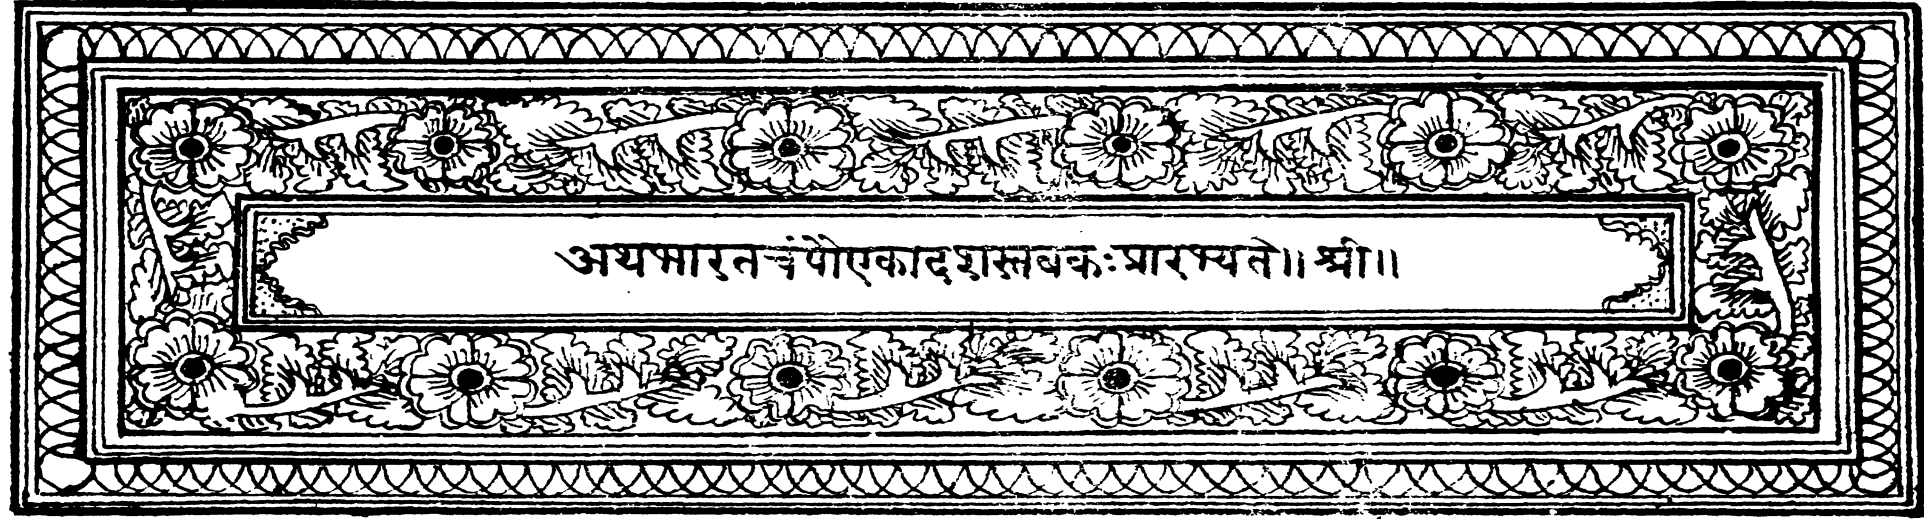 अथभारतचंपौएकादशस्तबकःप्रारभ्यते॥ श्री॥